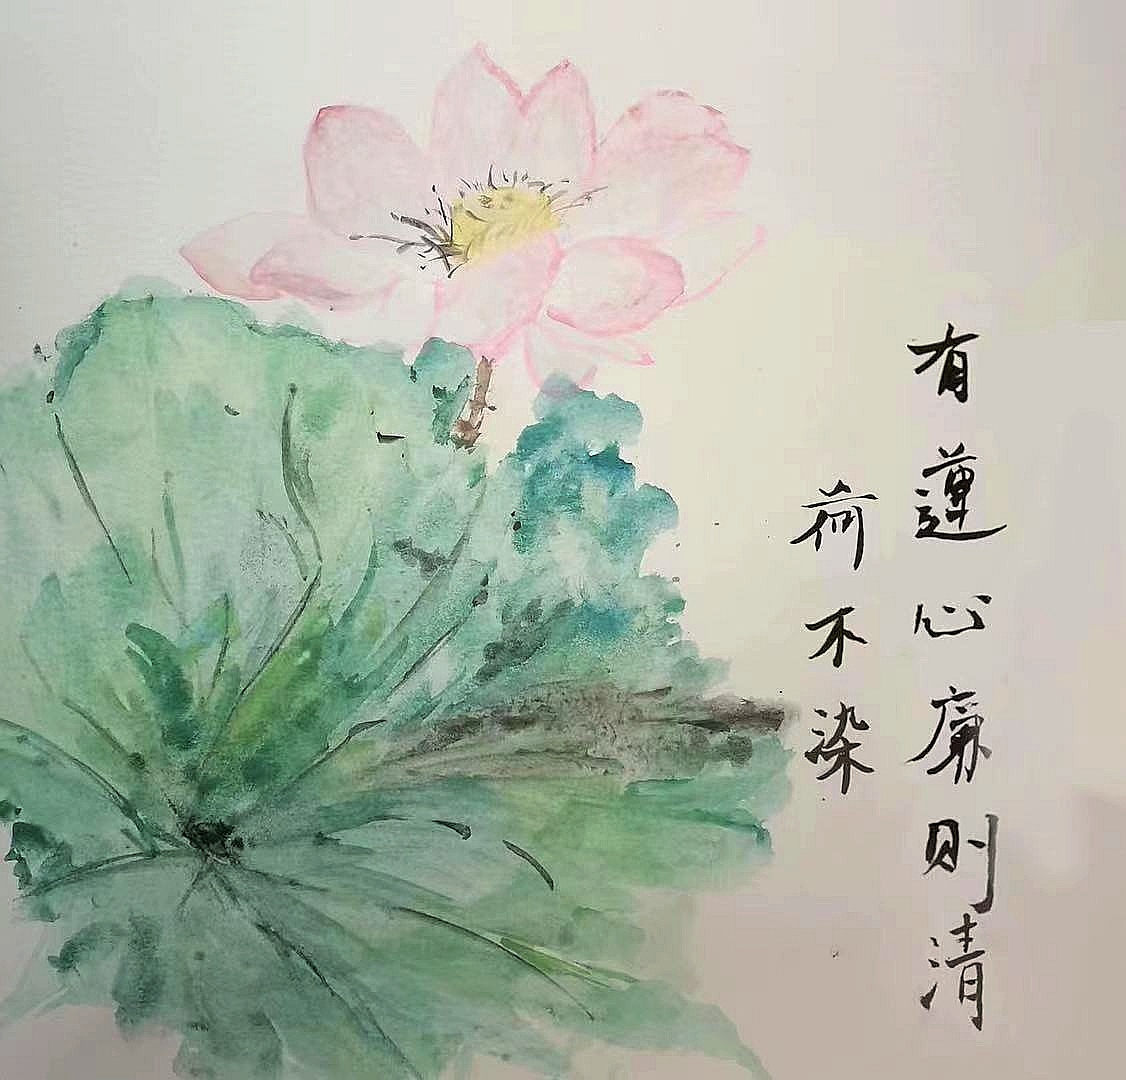 有蓮心廉则清
荷不染